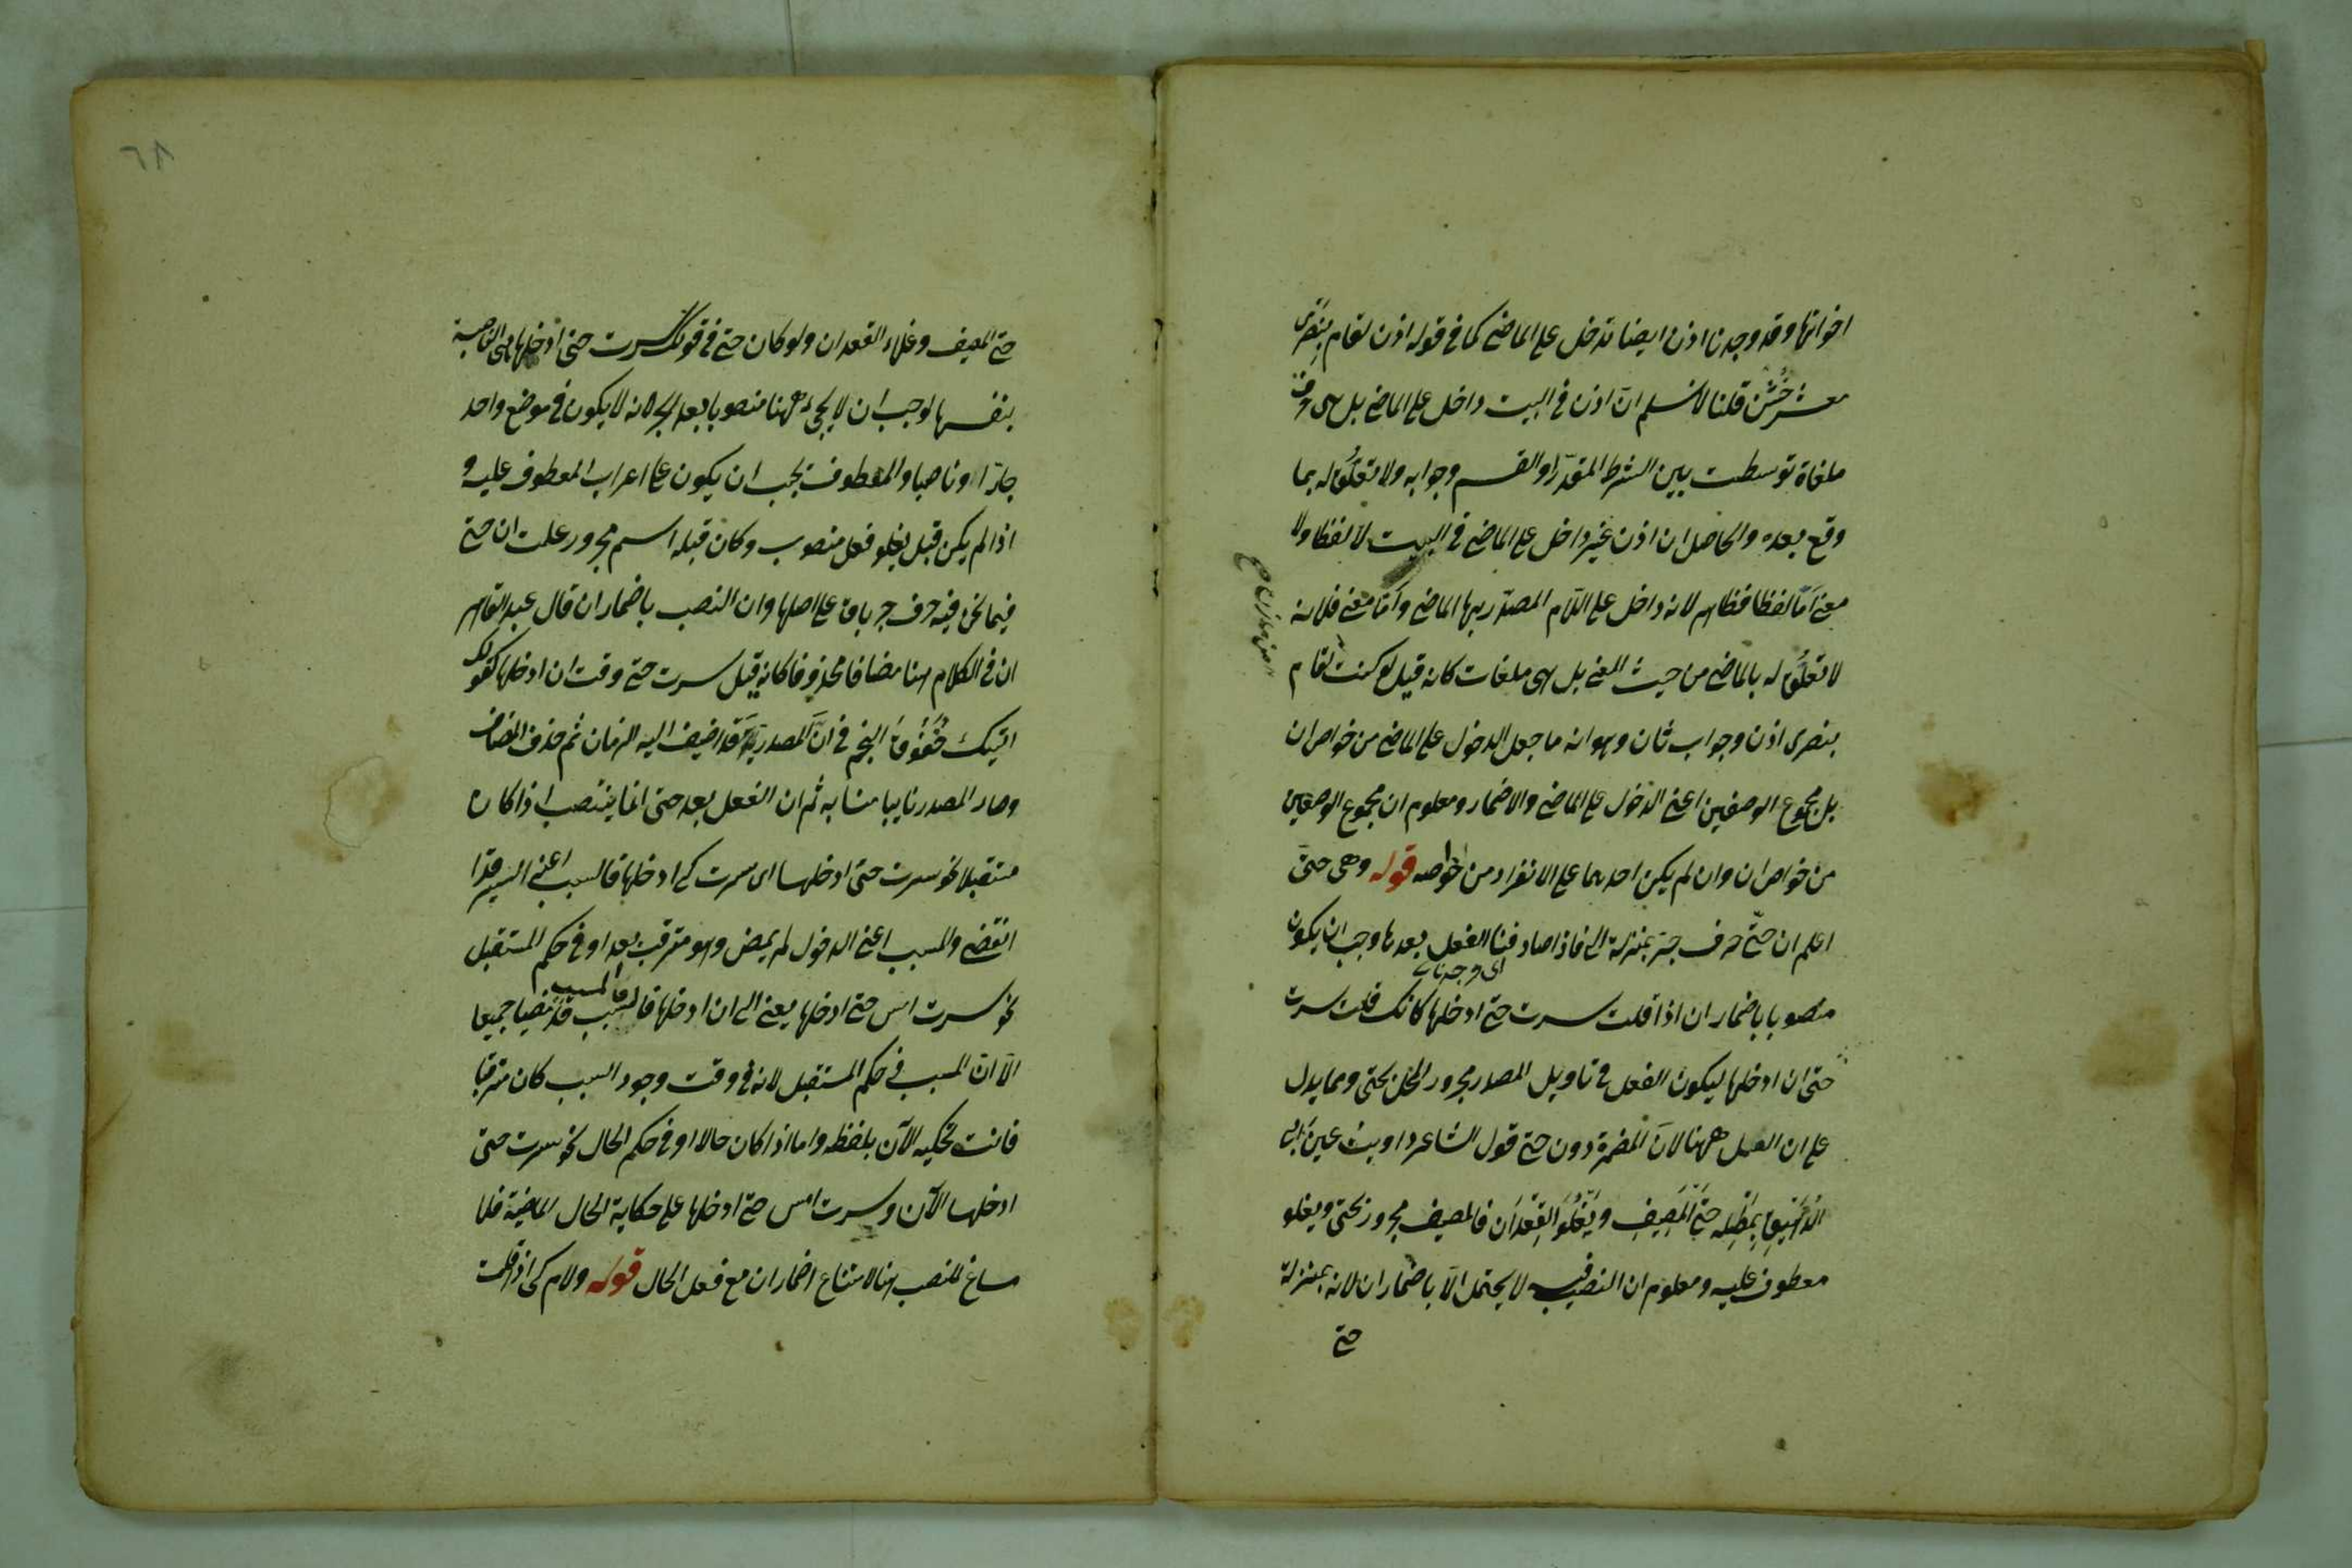 اخواتها وقد وجدنا اذن ايضا تدخل على الماضى كما فى قوله اذن لقام بنصرى
معشر خُشُنٌ قلنا لا نسلم انّ اذن فى البيت داخل على الماضى بل هى
ملغاة توسطت بين الشرط المقدّر او القسم وجوابه ولا تعلُّق له بما
وقع بعده والحاصل ان اذن غير داخل على الماضى فى البيت لا لفظا ولا
معنى امّا لفظا فظاهر لانه داخل على اللام المصدّر بها الماضى وامّا معنى فلانه
لا تعلُّق له بالماضى من حيث المعنى بل هى ملغات كانه قيل لو كنت لقام
بنصرى اذن وجواب ثان وهو انه ما جعل الدخول على الماضى من خواص ان
بل مجموع الوصفين اعنى الدخول على الماضى والاضمار ومعلوم ان مجموع الوصفين
من خواص ان وان لم يكن احدهما على الانفراد من خواصه قوله وهى حتّى
اعلم ان حتّى حرف جرّ بمنزلة الى فاذا صادفنا الفعل بعدها وجب ان يكون
اى وجدنا
منصوبا باضمار ان اذا قلت سرت حتى ادخلها كانك قلت سرت
حتى ان ادخلها ليكون الفعل فى تاويل المصدر مجرور المحل بحتى ومما يدل
على ان العمل ههنا لان المضمرة دون حتى قول الشاعر داويت عين ابى
الدَّهِيقِ بِمَطْلِه حتَّى المَصِيفِ ويَغْلُوَ القِعْدَان فالمصيف مجرور بحتى ويغلو
معطوف عليه ومعلوم ان النصب فيه لا يحتمل الّا باضمار ان لانه بمنزلة
حتى
٦٨
حتى المصيف وغلاء القعدان ولو كان حتى فى قولك سرت حتى ادخلها هى الناصبة
بنفسها لوجب ان لا يجىء ههنا منصوبا بعد الجر لانه لا يكون فى موضع واحد
جارّا وناصبا والمعطوف يجب ان يكون على اعراب المعطوف عليه و
اذا لم يكن قبل يغلو فعل منصوب وكان قبله اسم مجرور علمت ان حتى
فيما نحن فيه حرف جر باق على اصلها وان النصب باضمار ان قال عبد القاهر
ان فى الكلام هنا مضافا محذوفا كانه قيل سرت حتى وقت ان ادخلها كقولك
اتيتك خُفُوقَ النجم فى انَّ المصدريّة قد اضيف اليه الزمان ثم حذف المضاف
وصار المصدر نايبا منابه ثم ان الفعل بعد حتى انما ينتصب اذا كان
مستقبلا نحو سرت حتى ادخلها اى سرت كى ادخلها فالسبب اعنى السير قد
انقضى والمسبب اعنى الدخول لم يمض وهو مترقب بعد او فى حكم المستقبل
نحو سرت امس حتى ادخلها يعنى الى ان ادخلها فالسبب والمسبب قد مضيا جميعا
الّا انّ المسبب فى حكم المستقبل لانه فى وقت وجود السبب كان مترقبا
فانت تحكيه الآن بلفظه واما اذا كان حالا او فى حكم الحال نحو سرت حتى
ادخلها الآن وسرت امس حتى ادخلها على حكاية الحال الماضية فلا
مساغ للنصب هنا لامتناع اضمار ان مع فعل الحال قوله ولام كى اذا قلت